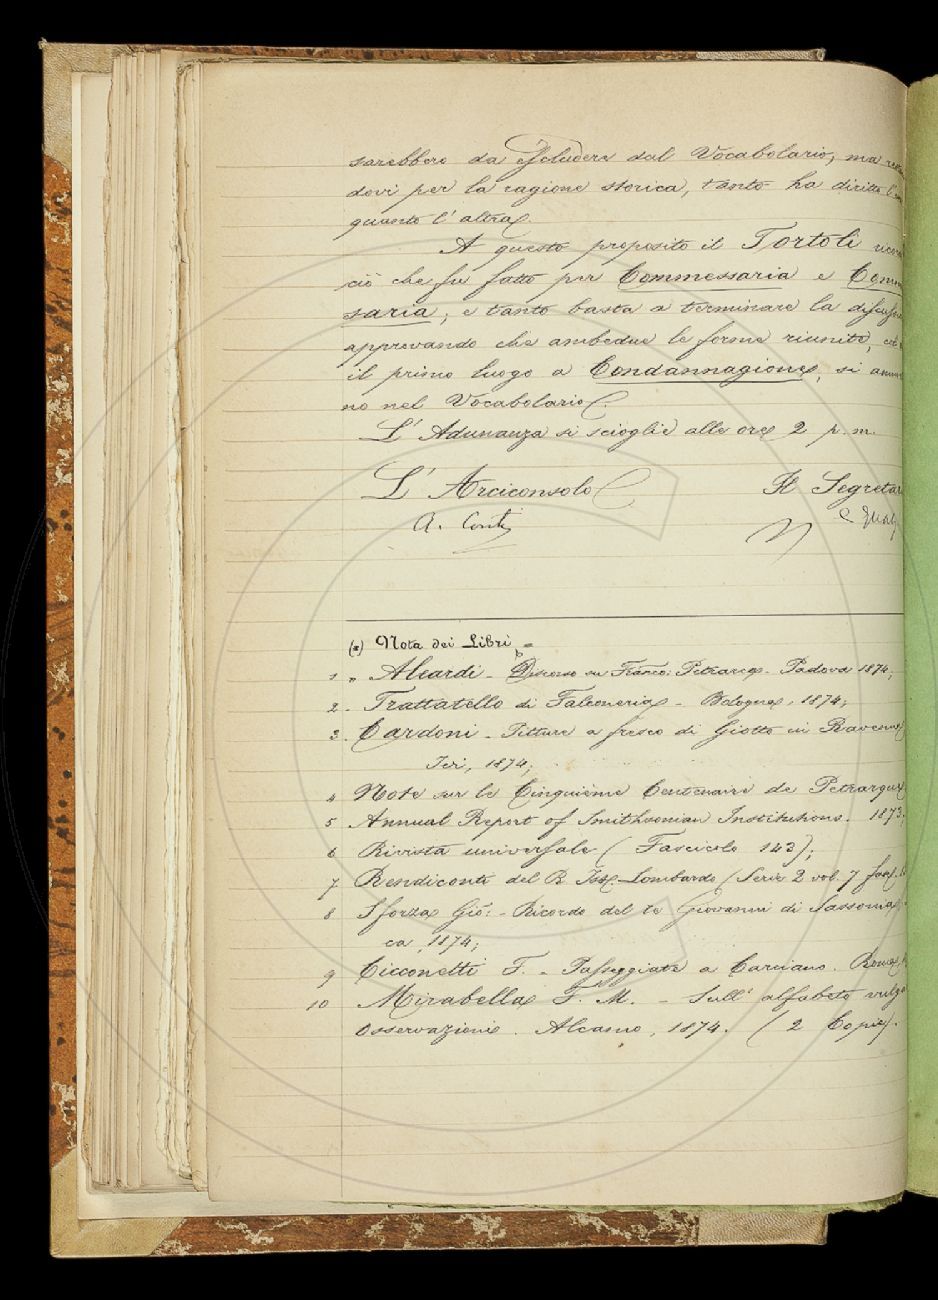 sarebbero da escludere dal Vocabolario, ma
dovi per la ragione storica, tanto ha diritto l'
quanto l'altra.
A questo proposito il Tortoli
ciò che fu fatto per Commessaria e Com
saria; e tanto basta a terminare la
approvando che ambedue le forme riunite,
il primo luogo a Condannagione, si
no nel Vocabolario.
L'Adunanza si scioglie alle ore 2 p. m.
L'Arciconsolo Il Segretar
A. Conti
(a) Nota dei Libri =
1 „ Aleardi - Discorso su Franco: Petrarca - Padova 1874;
2 . Trattatello di Falconeria - Bologna, 1874;
3 . Cardoni - Pitture a fresco di Giotto in Ravenna
1874;
4 Note sur le Cinquième Centenaire de Petrarque
5 Annual Report of Smithsonian Institutions. 1873;
6 Rivista universale (Fascicolo 143);
7 Rendiconti del R. Ist. Lombardo (Serie 2 vol. 7 fasc.
8 Sforza Gio: - Ricordo del re Giovanni di Sassonia
ca, 1874;
9 Cicconetti F. - Passeggiata a Carciano. Roma
10 Mirabella F. M. - Sull'alfabeto
Osservazioni. Alcamo, 1874. (2 Copie).